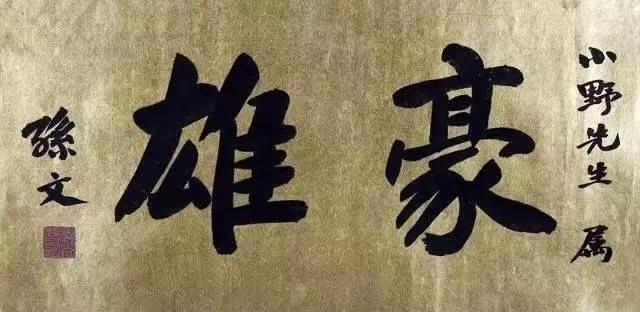 小野先生 属
豪雄
孫文